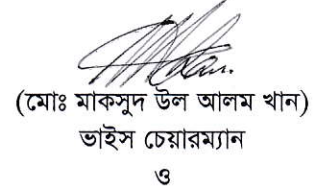 (মোঃ মাকসুদ উল আলম খান)
ভাইস চেয়ারম্যান
ও